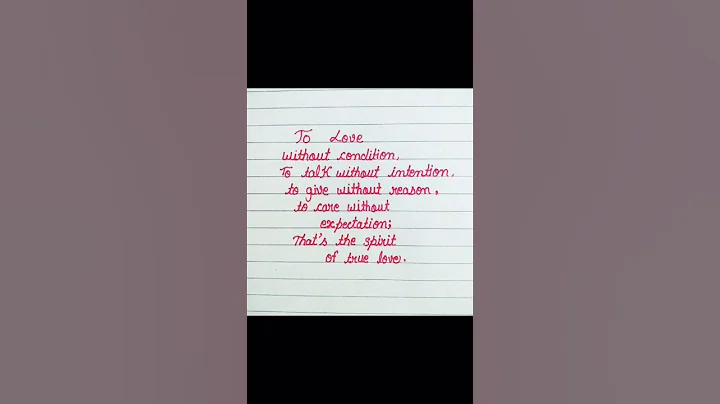 To Love
without condition,
To talk without intention,
to give without reason,
to care without
expectation;
That's the spirit
of true love.